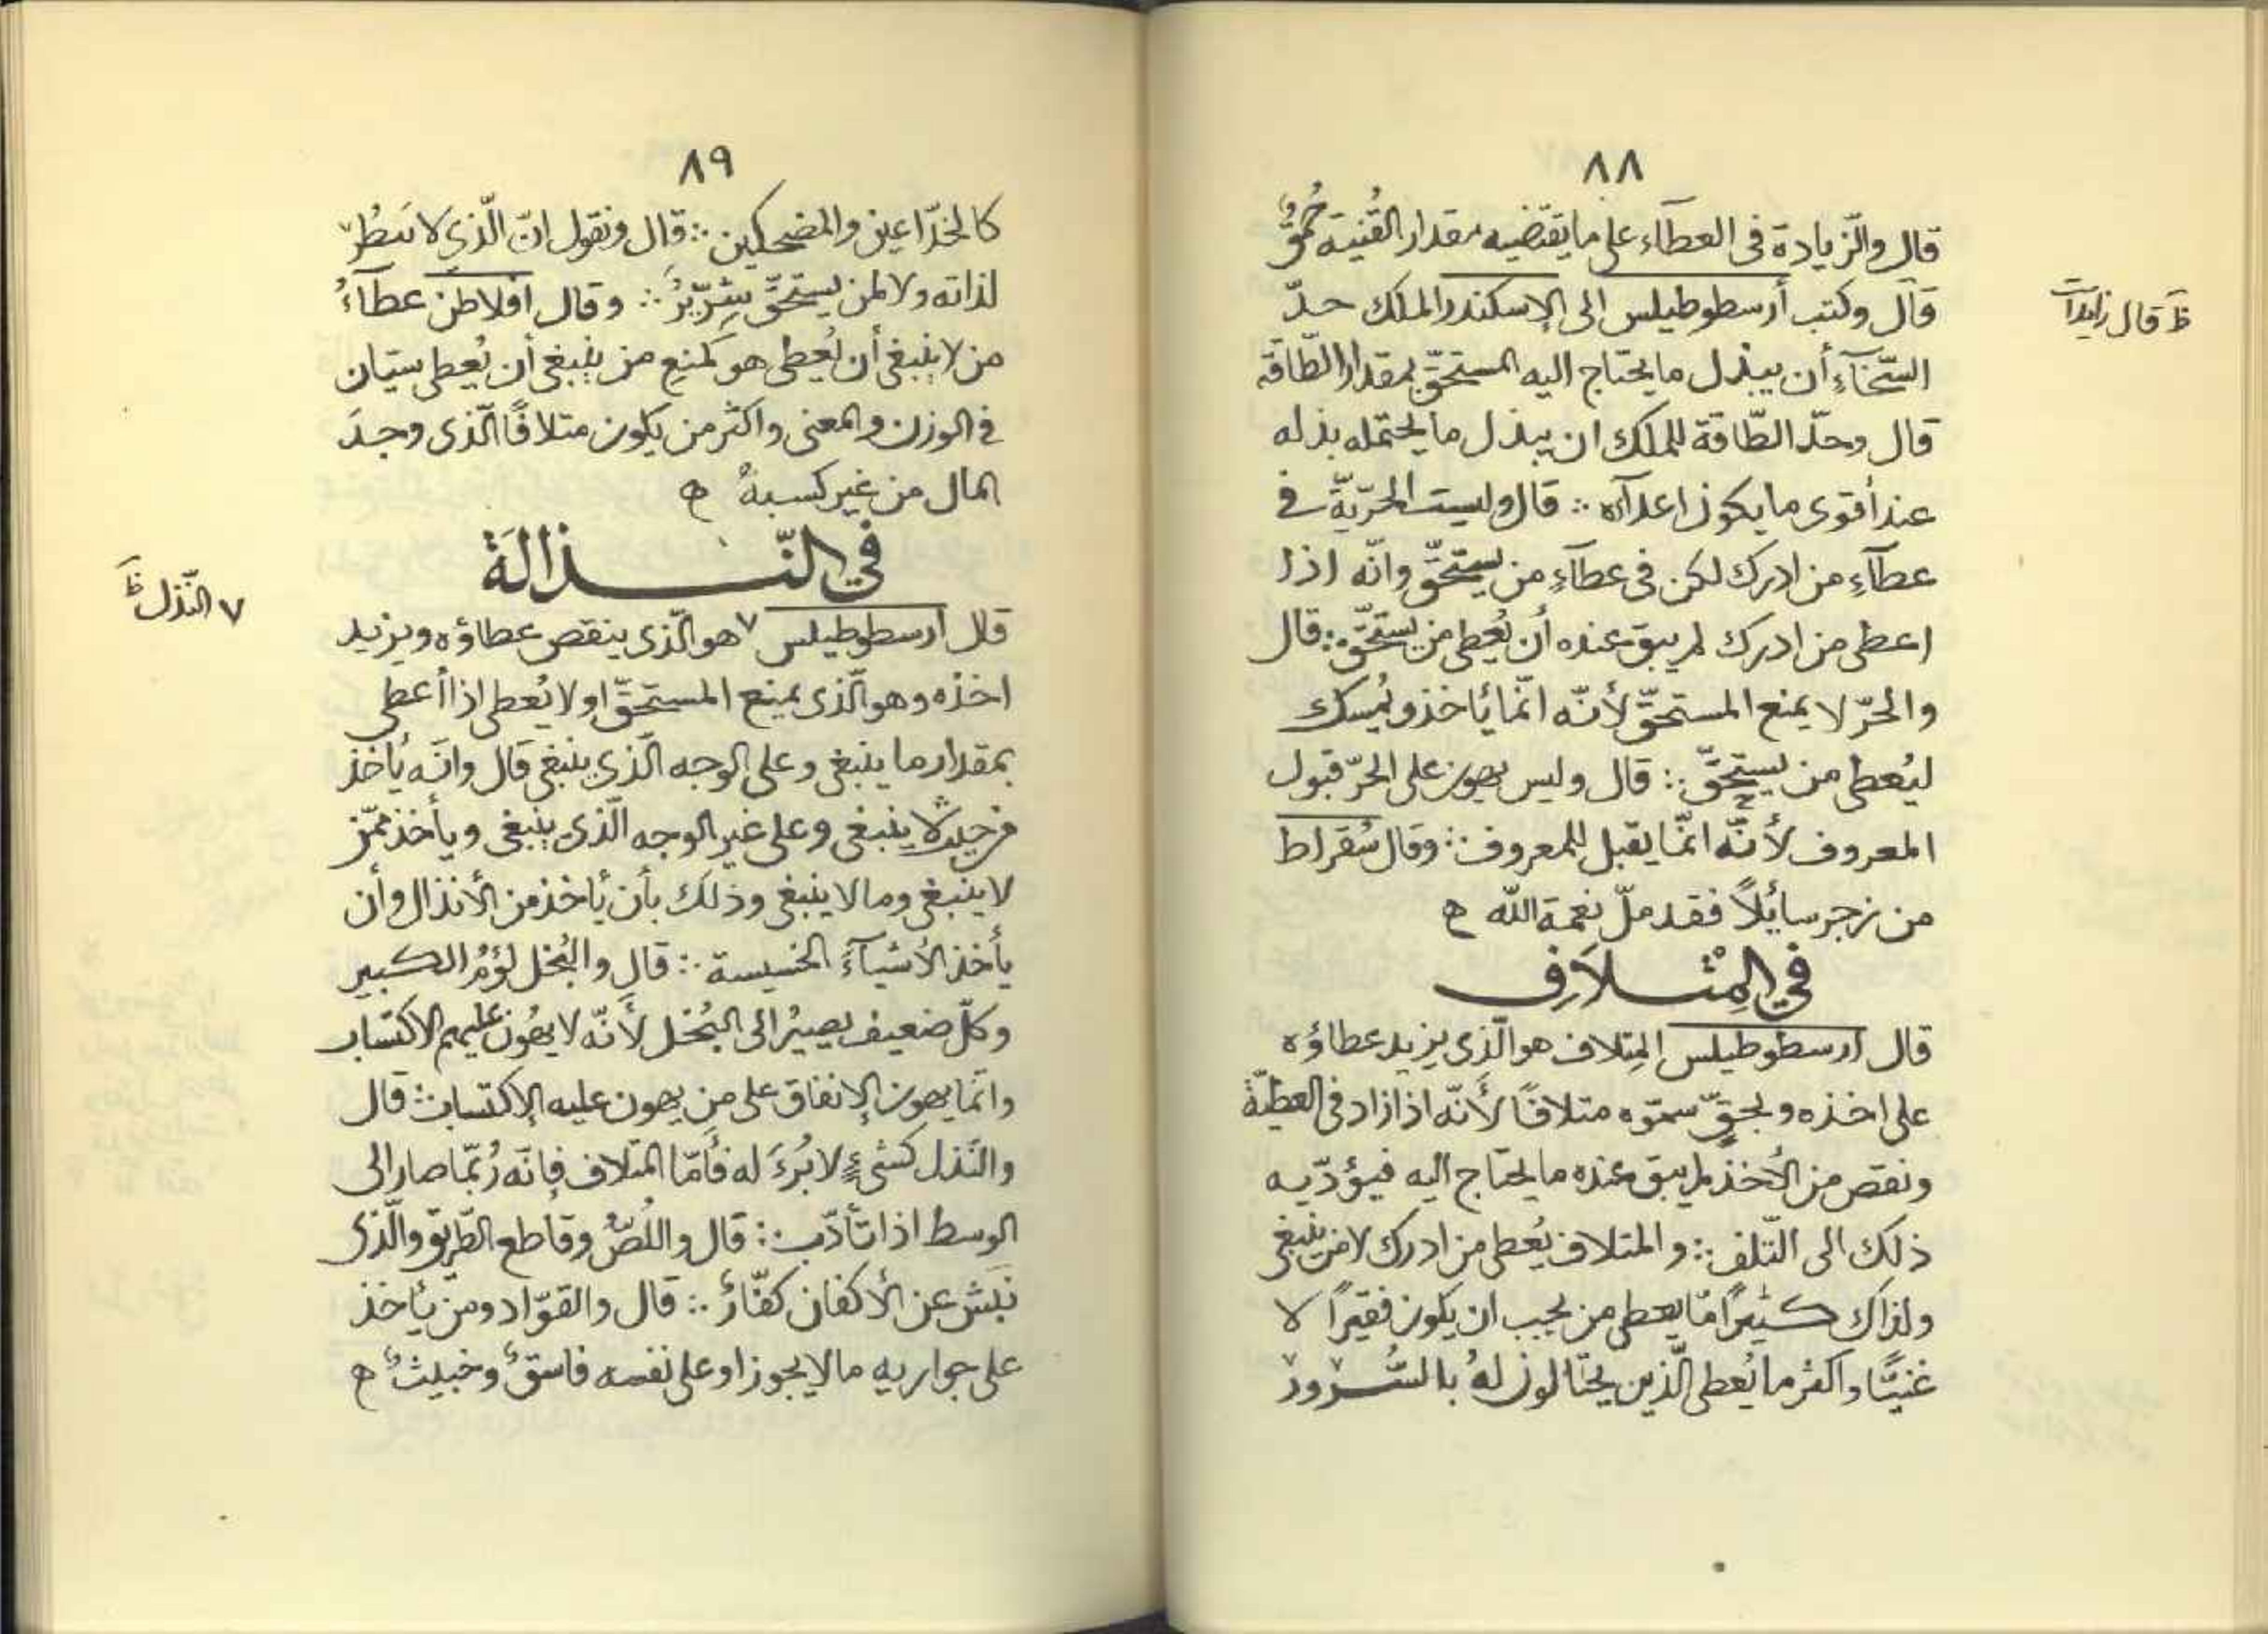 ٨٨
قال والزّيادة فى العطآء على ما يقتضيه مقدار القُنية حُمقٌ
قال وكتب أرسطوطيلس الى الإسكندر الملك حدّ
ظ قال زايدات
السّخآءِ أن يبذل ما يحتاج اليه المستحقّ بمقدار الطّاقة
قال وحدّ الطّاقة للملك ان يبذل ما يحتمله بذله
عند أقوى ما يكون اعدآؤه ∴ قال وليست الحرّيّة فى
عطآءِ من ادرك لكن فى عطآءِ من يستحقّ وانّه اذا
اعطى من ادرك لم يبق عنده أن يُعطى من يستحقّ ∴ قال
والحرّ لا يمنع المستحقّ لأنّه انّما يأخذ ويُمسك
ليُعطى من يستحقّ ∴ قال وليس يهون على الحرّ قبول
المعروف لأنّه انّما يقبل للمعروف ∴ وقال سُقراط
من زجر سايُلاً فقد ملّ نعمة الله ه
في المِتْلَافِ
قال ارسطوطيلس المِتلاف هو الّذى يزيد عطاؤه
على اخذه وبحقّ سمّوه متلافًا لأنّه اذا زاد فى العطيّة
ونقص من الأخذ لم يبق عنده ما يحتاج اليه فيؤدّيه
ذلك الى التّلف ∴ والمتلاف يُعطى من ادرك لا من ينبغى
ولذاك كثيرًا مّا يعطى من يجب ان يكون فقيرًا لا
غنيًّا واكثر ما يُعطى الّذين يحتالون لهُ بالسُّرور
٨٩
كالخدّاعين والمضحكين ∴ قال ونقول انّ الّذى لا
لذاته ولا لمن يستحقّ شرّيرٌ ∴ وقال افلاطن عطآءُ
من لا ينبغى أن يُعطى هو كمنع من ينبغى أن يُعطى سيّان
فى الوزن والمعنى واكثر من يكون متلافًا الّذى وجدَ
المال من غير كسبهِ ه
في النّذالَةَ
قال ارسطوطيلس ٧ هو الّذى ينقص عطاؤه ويزيد
٧ النّذل ظ
اخذه وهو الّذى يمنع المستحقّ او لا يُعطى اذا أعطى
بمقدار ما ينبغى وعلى الوجه الّذى ينبغى قال وانّه يأخذ
من حيث لا ينبغى وعلى غير الوجه الّذى ينبغى ويأخذ ممّن
لا ينبغى وما لا ينبغى وذلك بأن يأخذ من الأنذال وأن
يأخذ الأشيآءَ الخسيسة ∴ قال والبُخل لؤمُ الكبير
وكلّ ضعيف يصيرُ الى البُخل لأنّه لا يهُون عليهم الاكتساب
وانّما يهون الإنفاق على من يهون عليه الإكتساب ∴ قال
والنّذل كشىءٍ لا بُرءَ له فأمّا المتلاف فإنّه رُبّما صار الى
الوسط اذا تأدّب ∴ قال واللُصّ وقاطع الطّريق والّذى
نبش عن الأكفان كفّارٌ ∴ قال والقوّاد ومن يأخذ
على جواريه ما لا يجوز او على نفسه فاسقٌ وخبيثٌ ه